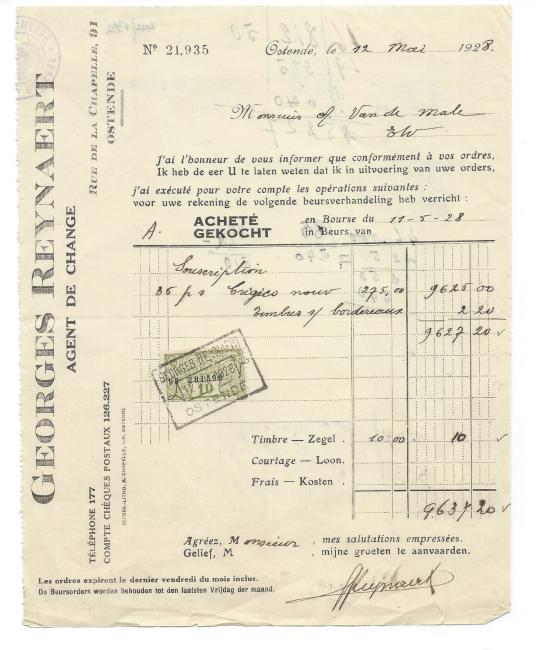 GEORGES REYNAERT
AGENT DE CHANGE
RUE DE LA CHAPELLE, 91
OSTENDE
TÉLÉPHONE 177
COMPTE CHÈQUES POSTAUX 126.227
Nº 21,935 Ostende, le 12 Mai 1928.
Monsieur A. Van de Male
E/V
J'ai l'honneur de vous informer que conformément à vos ordres,
Ik heb de eer U te laten weten dat ik in uitvoering van uwe orders,
j'ai exécuté pour votre compte les opérations suivantes :
voor uwe rekening de volgende beursverhandeling heb verricht :
A. ACHETÉ en Bourse du 11-5-28
GEKOCHT in Beurs van
Souscription
35 ps nouv 275,00 9625 00
Timbres s/ bordereaux 2 20
9627 20
GEORGES REYNAERT
1928
10
OSTENDE
Timbre — Zegel . 10 00 10
Courtage — Loon.
Frais — Kosten .
9.637 20
Agréez, Monsieur , mes salutations empressées.
Gelief, M , mijne groeten te aanvaarden.
GReynaert
Les ordres expirent le dernier vendredi du mois inclus.
De Beursorders worden behouden tot den laatsten Vrijdag der maand.